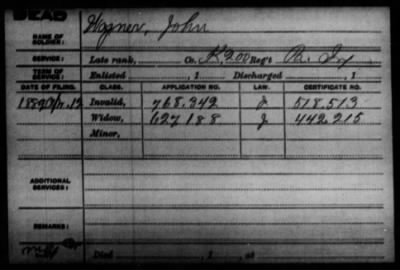 DEAD
NAME OF SOLDIER: Wagner, John
SERVICE: Late rank, Co. K, 200 Reg't Pa. Inf
TERM OF SERVICE: Enlisted , 1 Discharged , 1
DATE OF FILING. CLASS. APPLICATION NO. LAW. CERTIFICATE NO.
Invalid, 768.342 J 518.513
Widow, 627188 J 442.215
Minor,
ADDITIONAL SERVICES:
REMARKS:
Died , 1 , at